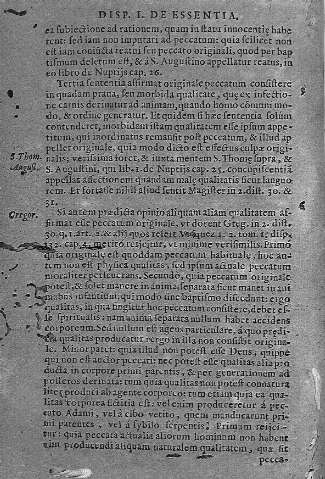 DISP. I. DE ESSENTIA,
ea subiectione ad rationem, quam in statu innocentiæ habe
rent: sed iam non imputari ad peccatum: quia scilicet non
est iam coniuncta reatui seu peccato originali, quod per bap
tismum deletum est, & à S. Augustino appellatur reatus, in
eo libro de Nuptijs cap. 26.
Tertia sententia affirmat originale peccatum consistere
in quadam praua, seu morbida qualitate, quæ ex infectio
ne carnis deriuatur ad animam, quando homo cõmuni mo
do, & ordine generatur. Et quidem si hæc sententia solum
contenderet, morbidam istam qualitatem esse ipsum appe-
titum, qui inordinatus remansit post peccatum, & illud ap
pellet originale, quia modo dicto est effectus culpæ origi-
nalis; verissima foret, & iuxta mentem S. Thomæ supra, &
S. Augustini, qui lib. 1. de Nuptijs cap. 25. concupiscentiā
appellat affectionem quandam malæ qualitatis sicut languo
rem. Et fortasse nihil aliud sentit Magister in 2. dist. 30. &
31.
S. Thom.
August.
Gregor.
Si autem prædicta opinio aliquam aliam qualitatem af-
firmat esse peccatum originale, vt docent Greg. in 2. dist.
30. q. 1. art. 2. & alij quos refert Vasquez 1. 2. tom. 1. disp.
132. cap. 4. meritò reijcitur, vt minime verisimilis. Primo
quia originale est quoddam peccatum habituale, hoc au-
tem non est physica qualitas, sed ipsum actuale peccatum
moraliter perseuerans. Secundo, quia peccatum originale
potest, & solet manere in anima separata sicut manet in ani
mabus infantium, qui modo sine baptismo discedant: ergo
qualitas, in qua fingitur hoc peccatum consistere, deberet es-
se spiritualis: nam anima separata nullum habet accidens
corporeum. Sed nullum est agens particulare, à quo prædi-
cta qualitas producatur: ergo in illa non consistit origina-
le. Minor patet: quia illud non potest esse Deus, quippe
qui non est auctor peccati: nec potest esse qualitas alia pro
ducta in corpore primi parentis, & per generationem ad
posteros deriuata: tum quia qualitas non potest connatura
liter produci ab agente corporeo: tum etiam quia ea qua-
litas corporea fictitia est: vel enim produceretur à pec-
cato Adami, vel à cibo vetito, quem manducarunt pri-
mi parentes, vel à sybilo serpentis. Primum reijci-
tur: quia peccata actualia aliorum hominum non habent
vim producendi aliquam naturalem qualitatem, quæ sit
pecca-